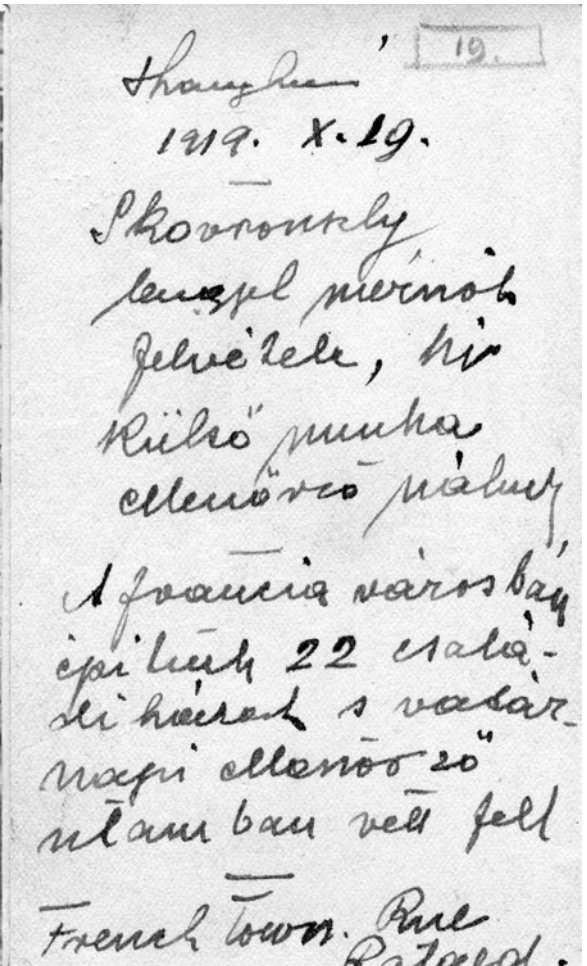 19.
Shanghai
1919. X. 19.
Skovronszky
lengyel mérnök
felvétele, ki
külső munka
ellenőrző nálunk
A francia városban
építünk 22 csalá-
di házat s vasár-
napi ellenőrző
útamban vett fel
French Town. Rue